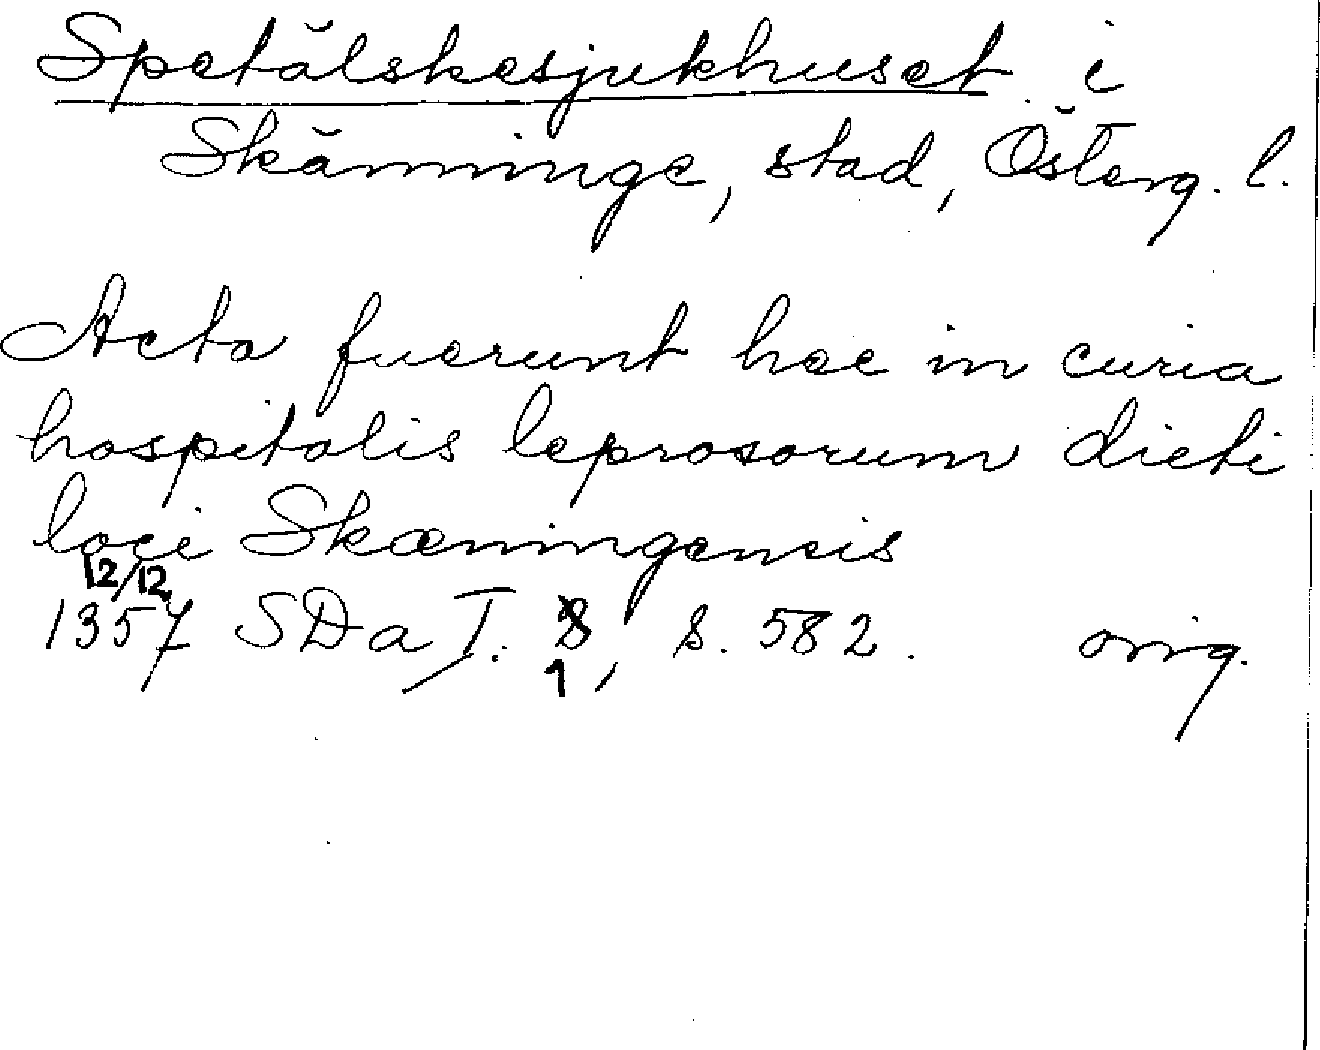 Spetälskesjukhuset i
Skänninge, stad, Österg. l.
Acta fuerunt hec in curia
hospitalis leprosorum dicti
loci Skæningensis
12/12
1357 SD a I. 8, s. 582. orig.
1